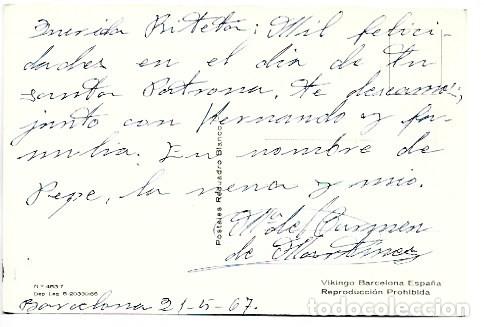 Querida Riteta: Mil felici-
dades en el dia de tu
santa Patrona, te deseamos
junto con Hernando y fa-
milia. En nombre de
Pepe, la nena y mio.
Mª del Carmen
de Martinez
Postales Reduadro Blanco
Nº 4837
Dep. Leg. B-20330-66
Vikingo Barcelona España
Reproducción Prohibida
Barcelona 21-5-67.
todocoleccion